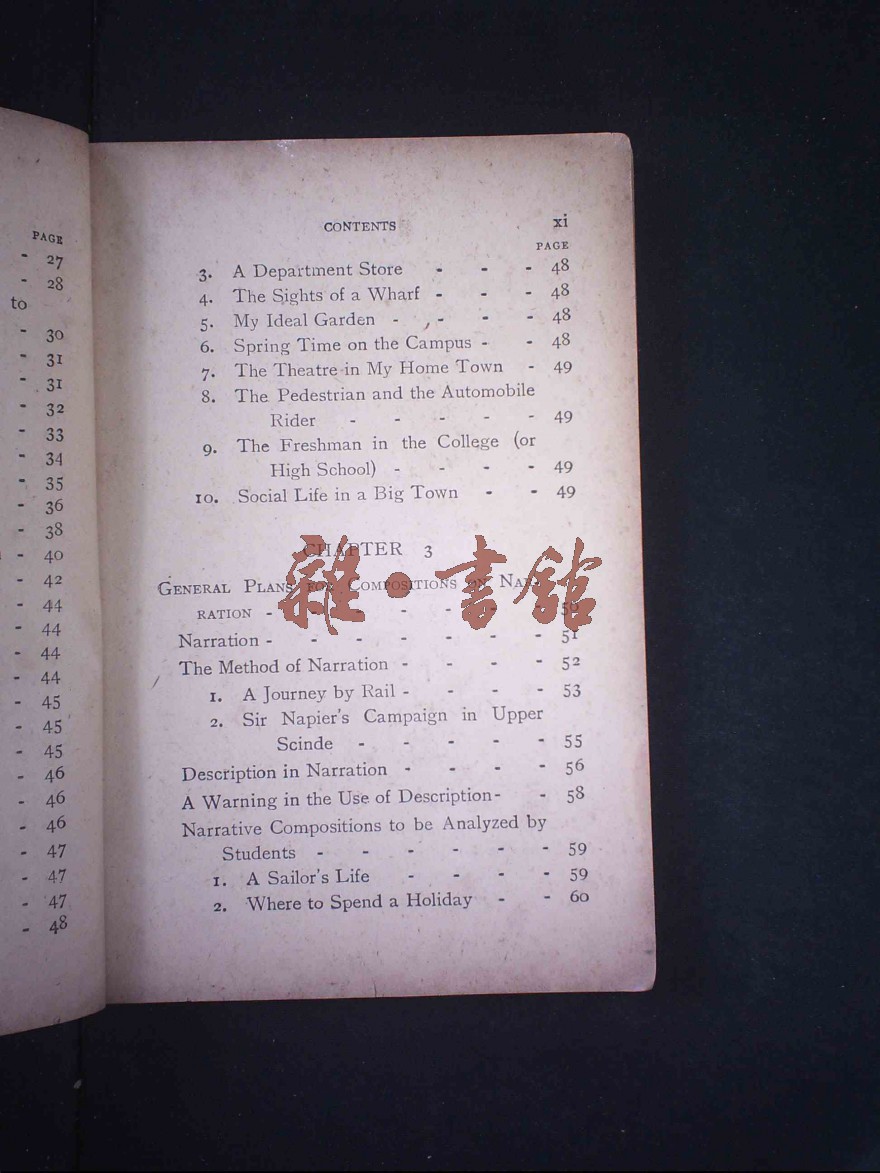 PAGE
- 27
- 28
to
- 30
- 31
- 31
- 32
- 33
- 34
- 35
- 36
- 38
- 40
- 42
- 44
- 44
- 44
- 44
- 45
- 45
- 45
- 46
- 46
- 46
- 47
- 47
- 47
- 48
CONTENTS xi
PAGE
3. A Department Store - - - 48
4. The Sights of a Wharf - - - 48
5. My Ideal Garden - - - - 48
6. Spring Time on the Campus - - 48
7. The Theatre in My Home Town - 49
8. The Pedestrian and the Automobile
Rider - - - - - 49
9. The Freshman in the College (or
High School) - - - - 49
10. Social Life in a Big Town - - 49
CHAPTER 3
GENERAL PLANS FOR COMPOSITIONS ON NAR-
RATION - - - - - - - 50
Narration - - - - - - - 51
The Method of Narration - - - - 52
1. A Journey by Rail - - - - 53
2. Sir Napier's Campaign in Upper
Scinde - - - - - 55
Description in Narration - - - - 56
A Warning in the Use of Description - - 58
Narrative Compositions to be Analyzed by
Students - - - - - - 59
1. A Sailor's Life - - - - 59
2. Where to Spend a Holiday - - 60
雜·書館